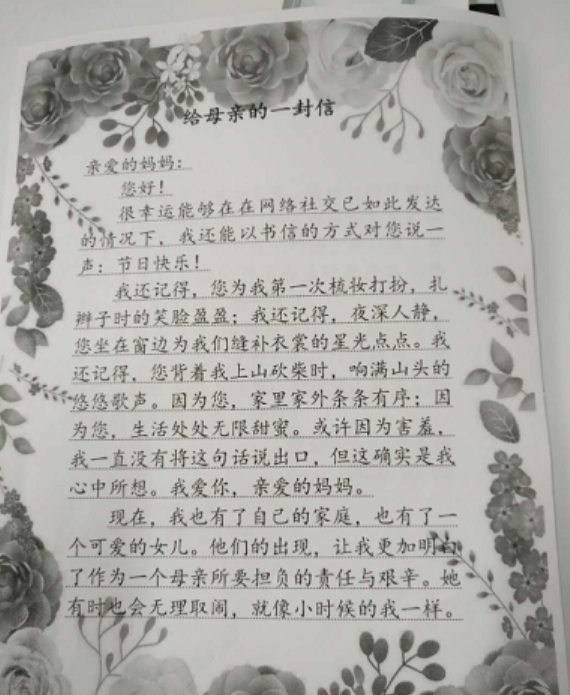 给母亲的一封信
亲爱的妈妈：
您好！
很幸运能够在在网络社交已如此发达
的情况下，我还能以书信的方式对您说一
声：节日快乐！
我还记得，您为我第一次梳妆打扮，扎
辫子时的笑脸盈盈；我还记得，夜深人静，
您坐在窗边为我们缝补衣裳的星光点点。我
还记得，您背着我上山砍柴时，响满山头的
悠悠歌声。因为您，家里家外条条有序；因
为您，生活处处无限甜蜜。或许因为害羞，
我一直没有将这句话说出口，但这确实是我
心中所想。我爱你，亲爱的妈妈。
现在，我也有了自己的家庭，也有了一
个可爱的女儿。他们的出现，让我更加明白
了作为一个母亲所要担负的责任与艰辛。她
有时也会无理取闹，就像小时候的我一样。